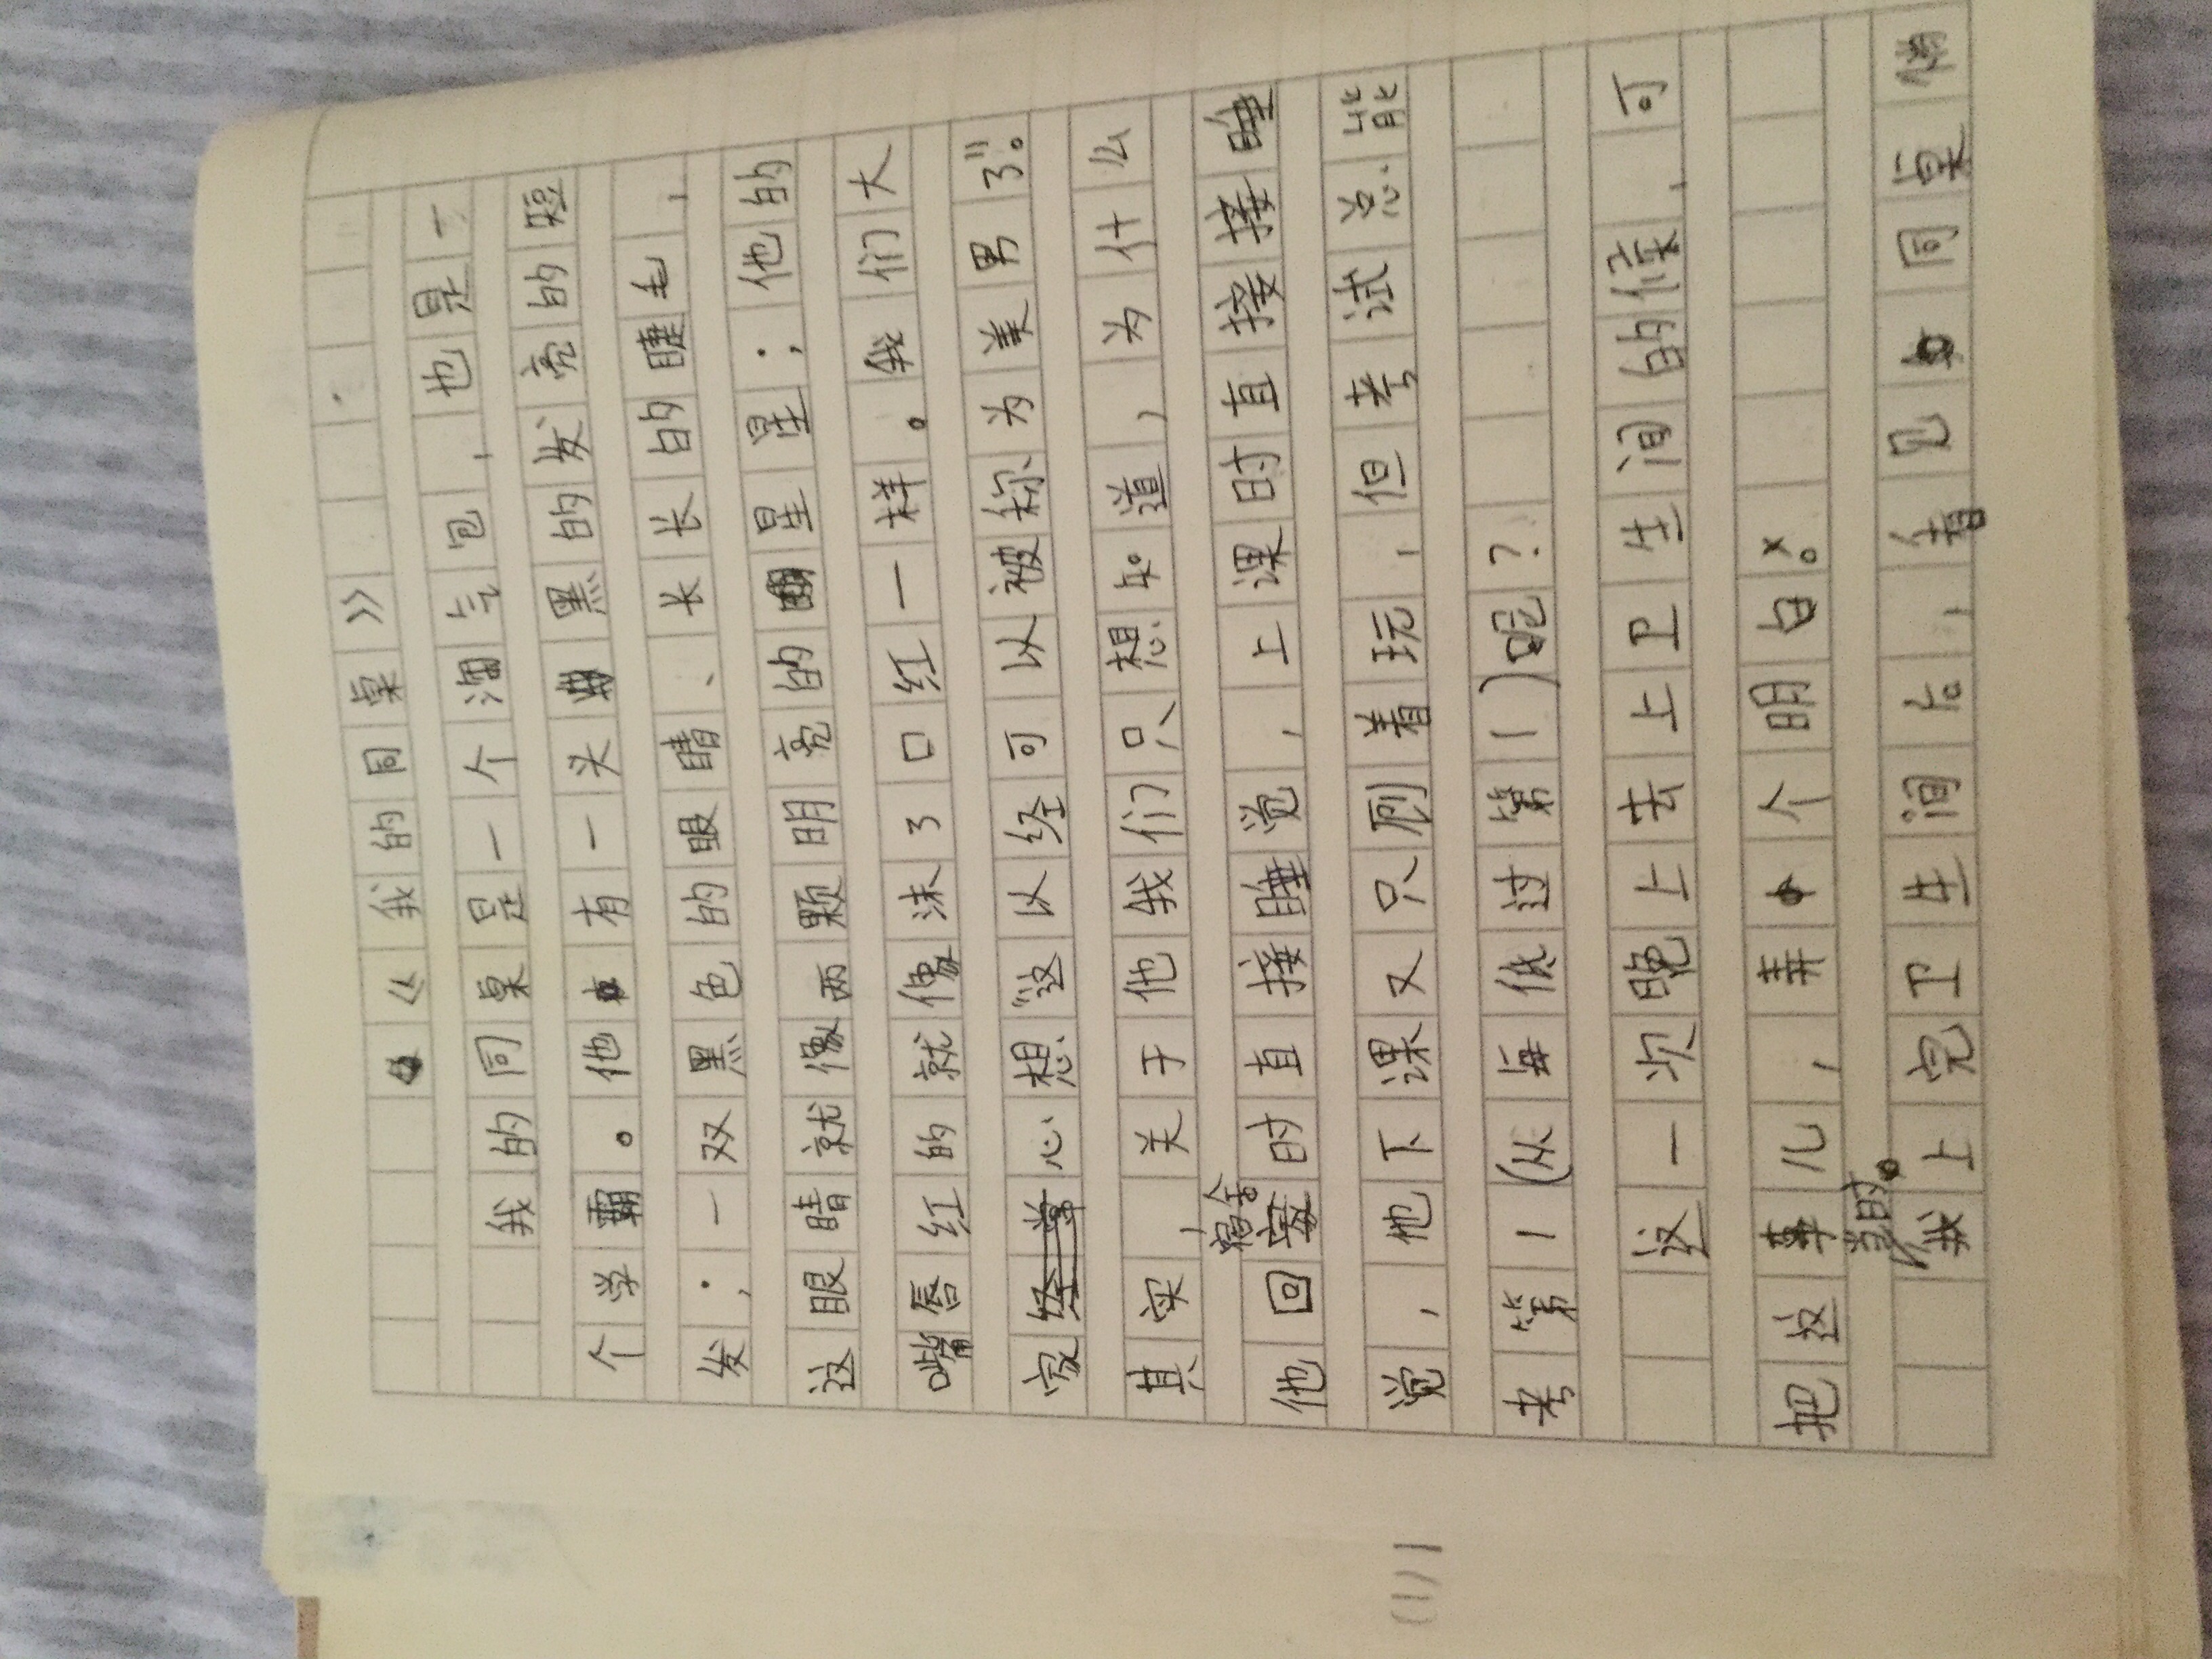 《我的同桌》
我的同桌是一个淘气包，也是一
个学霸。他有一头黑的发亮的短
发；一双黑色的眼睛、长长的睫毛，
这眼睛就像两颗明亮的星星；他的
嘴唇红的就像沫了口红一样。我们大
家心想“这以经可以被称为美男了”。
其实，关于他我们只想知道，为什么
他回宿舍时直接睡觉，上课时直接接睡
觉，他下课又只顾着玩，但考试总能
考第1（从每低过第1）呢？
这一次晚上去上卫生间的候，可
时。
把这事儿，弄个明白。
当我上完卫生间后，看见同桌